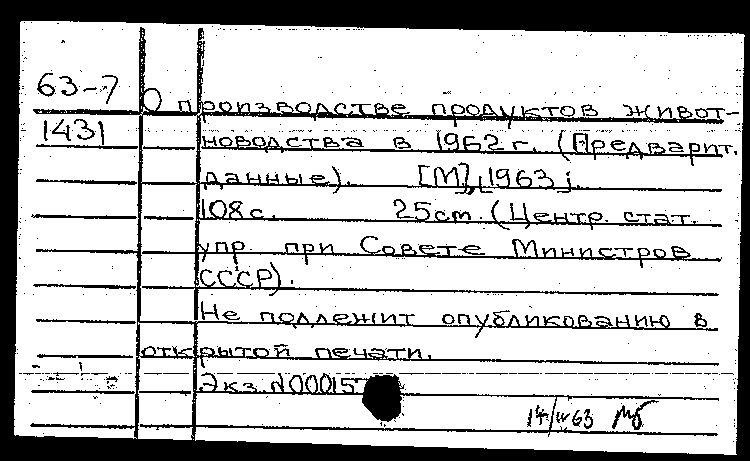 63-7
1431
О производстве продуктов живот-
новодства в 1962 г. (Предварит.
данные). [М], 1963 г.
108 с. 25 см. (Центр. стат.
упр. при Совете Министров
СССР).
Не подлежит опубликованию в
открытой печати.
Экз. N 00015
14/IV 63